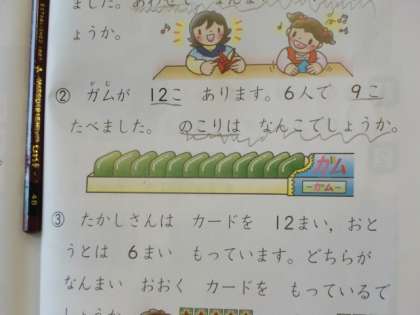 ました。
ょうか。
② ガムが 12こ あります。6人で 9こ
たべました。 のこりは なんこでしょうか。
ガム
ーガムー
③ たかしさんは カードを 12まい, おと
うとは 6まい もっています。どちらが
なんまい おおく カードを もっているで
しょうか
4B